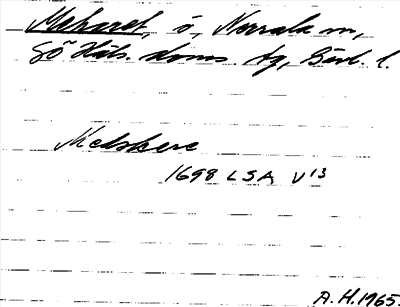 Medskret, ö, Norrala sn,
Sö Häls. doms. tg, Gävl. l.
Medskere
1698 LSA V 13
A.H. 1965.